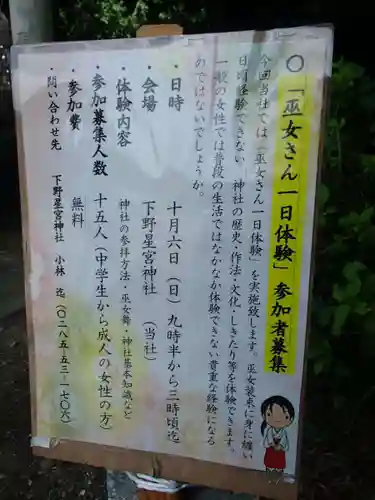 ○「巫女さん一日体験」参加者募集
今回当社では「巫女さん一日体験」を実施致します。巫女装束に纏い
日頃経験できない、神社の歴史・作法・文化・しきたり等を体験できます。
一般の女性では普段の生活ではなかなか体験できない貴重な経験になる
のではないでしょうか。
・日時　十月六日（日）九時半から三時頃迄
・会場　下野星宮神社　（当社）
・体験内容　神社の参拝方法・巫女舞・神社基本知識など
・参加募集人数　十五人（中学生から成人の女性の方）
・参加費　無料
・問い合わせ先　下野星宮神社　小林　迄（〇二八五-五三-一七〇六）